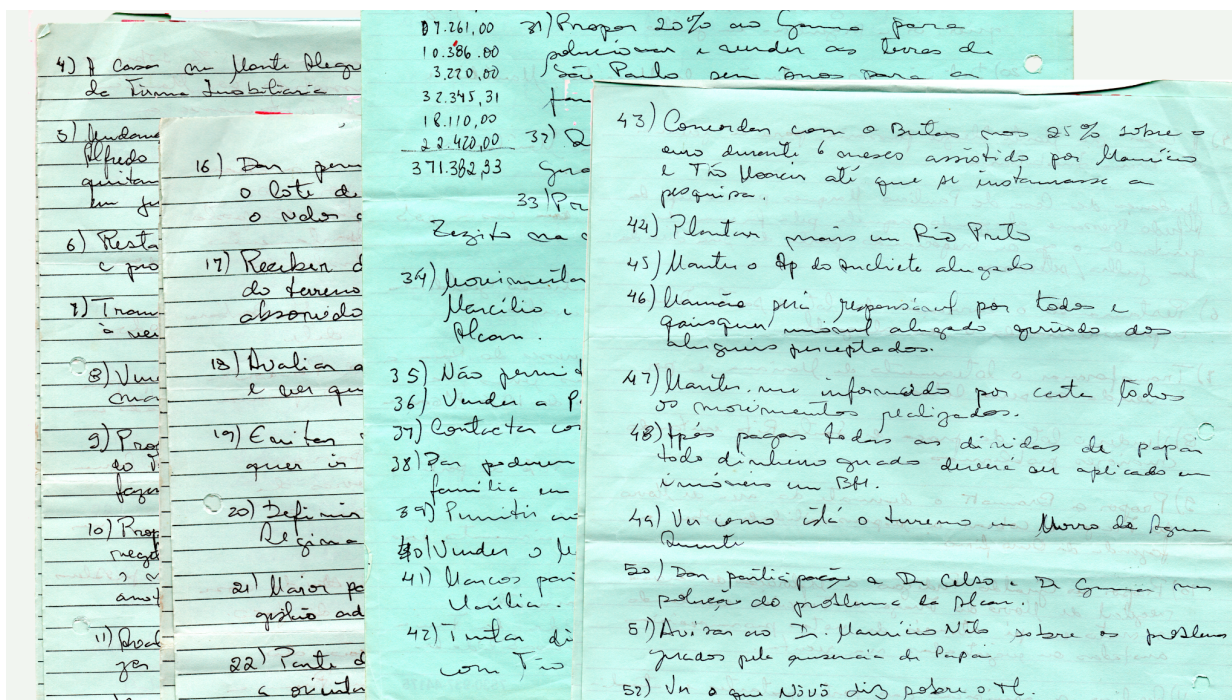 4) A casa na Monte Alegr
da Firma Imobiliaria
5)
Alfredo
quitan
em ju
6) Resta
e pro
7) Tran
à ven
8) Ven
ma
9) Prog
do
fazen
10) Prop
nego
anot
11)
16) Dar perm
o lote de
o valor
17) Receber d
do terreno
absorvido
18) Avaliar a
e ver qu
19) Evitar
quer ir
20) Definir
Regina
21) Maior pa
gestão ad
22) Parte d
a orienta
07.261,00
10.386.00
3.220,00
32.345,31
18.110,00
22.420,00
371.382,33
31) Propor 20% ao Gama para
solucionar e vender as terras de
São Paulo sem ônus para a
fam
32)
33) Pro
Zezito na
34) Movimentar
Marcílio e
Alcan.
35) Não permit
36) Vender a P
37) Contactar co
38) Dar poderem
família em
39) Permitir
40) Vender o
41) Marcos par
Marília.
42) Tentar di
com Tio
43) Concordar com o Britas nos 25% sobre o
ouro durante 6 meses assistido por Maurício
e Tio Moacir até que se instaurasse a
pesquisa.
44) Plantar mais em Rio Preto
45) Manter o Ap do Anchieta alugado
46) Mamãe será responsável por todos e
quaisquer imóvel alugado gerindo dos
alugueis perceptados.
47) Manter-me informado por carta todos
os movimentos realizados.
48) Após pagar todas as dívidas de papai
todo dinheiro gerado deverá ser aplicado em
imóveis em BH.
49) Ver como está o terreno em Morro da Água
Quente
50) Dar participação a Dr Celso e Dr na
solução do problema da Alcan.
51) Avisar ao Dr. Maurício Neto sobre os problemas
gerados pela ausencia de Papai
52) Ver o que Nivo diz sobre o